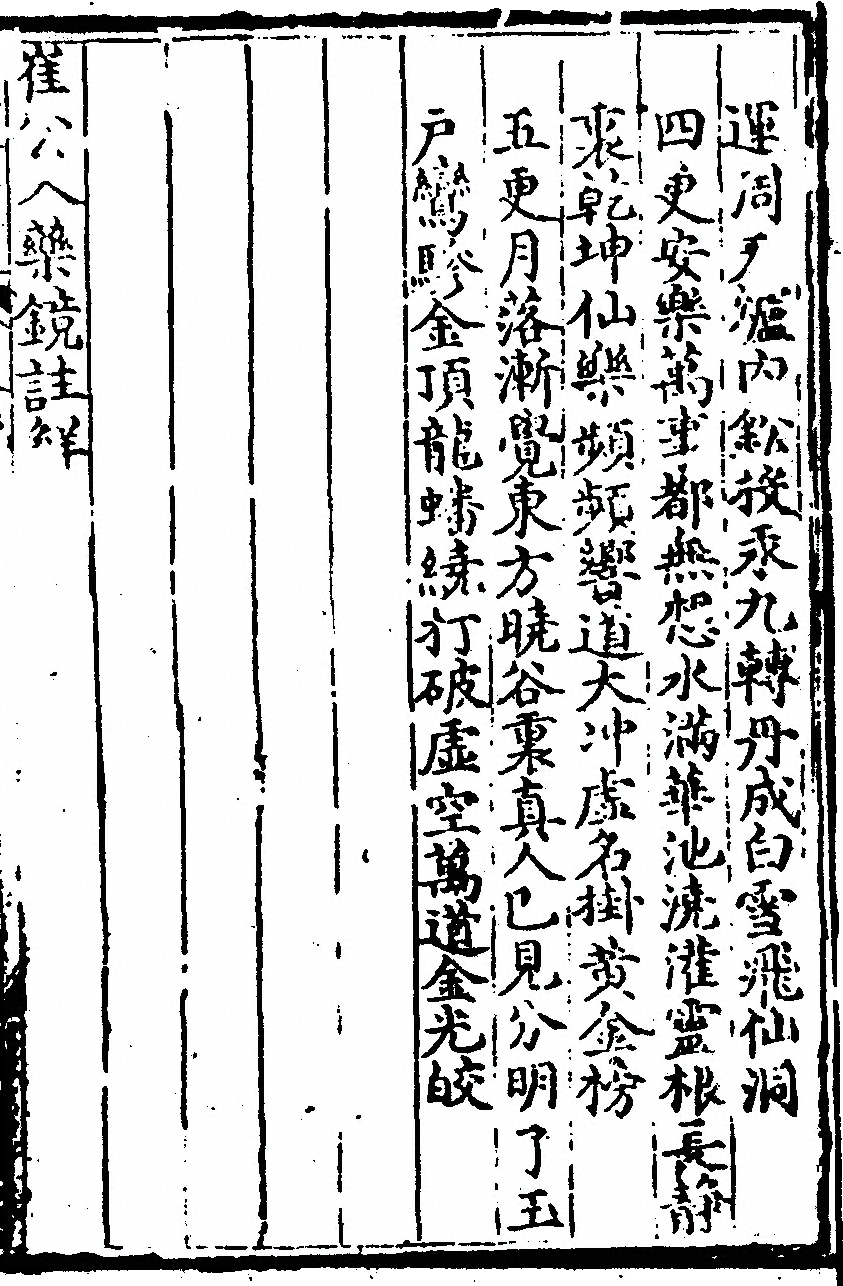 運周天爐內鈆投汞九轉丹成白雪飛仙洞
四更安樂萬事都無想水滿華池澆灌靈根長靜
裏乾坤仙樂頻頻響道大冲虛名掛黄金榜
五更月落漸覺東方曉谷裏真人已見分明了玉
户鸞驂金頂龍蟠繞打破虛空萬道金光皎
崔公入藥鏡註觧